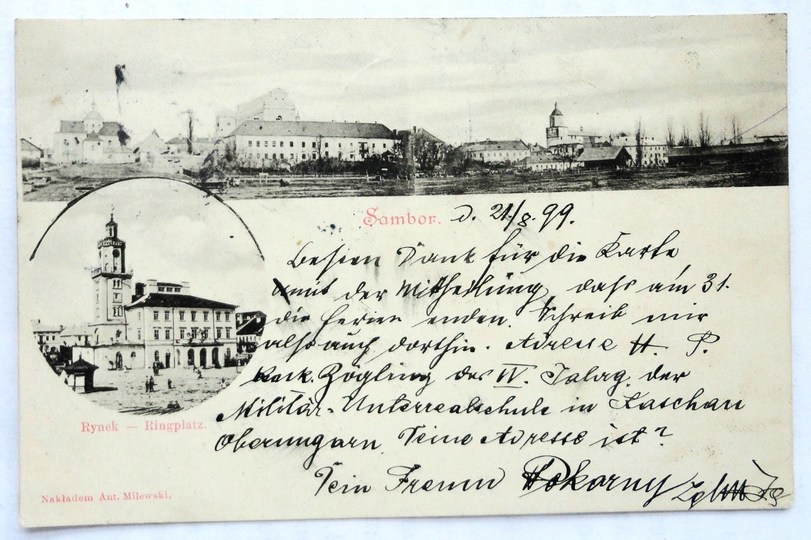 Sambor. d. 21/8. 99.
Besten Dank für die Karte
mit der Mittheilung, dass am 31.
die Ferien enden. Schreib mir
also auch dorthin. Adresse H. P.
Zögling des IV. Jahrg. der
Militär-Unterrealschule in Kaschau
Oberungarn. Deine Adresse ist?
Dein Pokorny
Rynek — Ringplatz.
Nakładem Ant. Milewski.